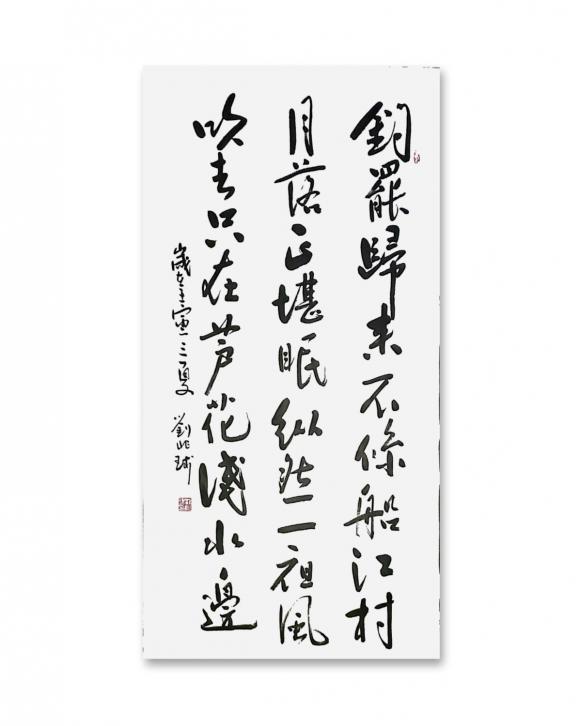 釣罷歸來不係船江村
月落正堪眠纵然一夜風
吹去只在芦花淺水邊
歲在壬寅三夏 劉